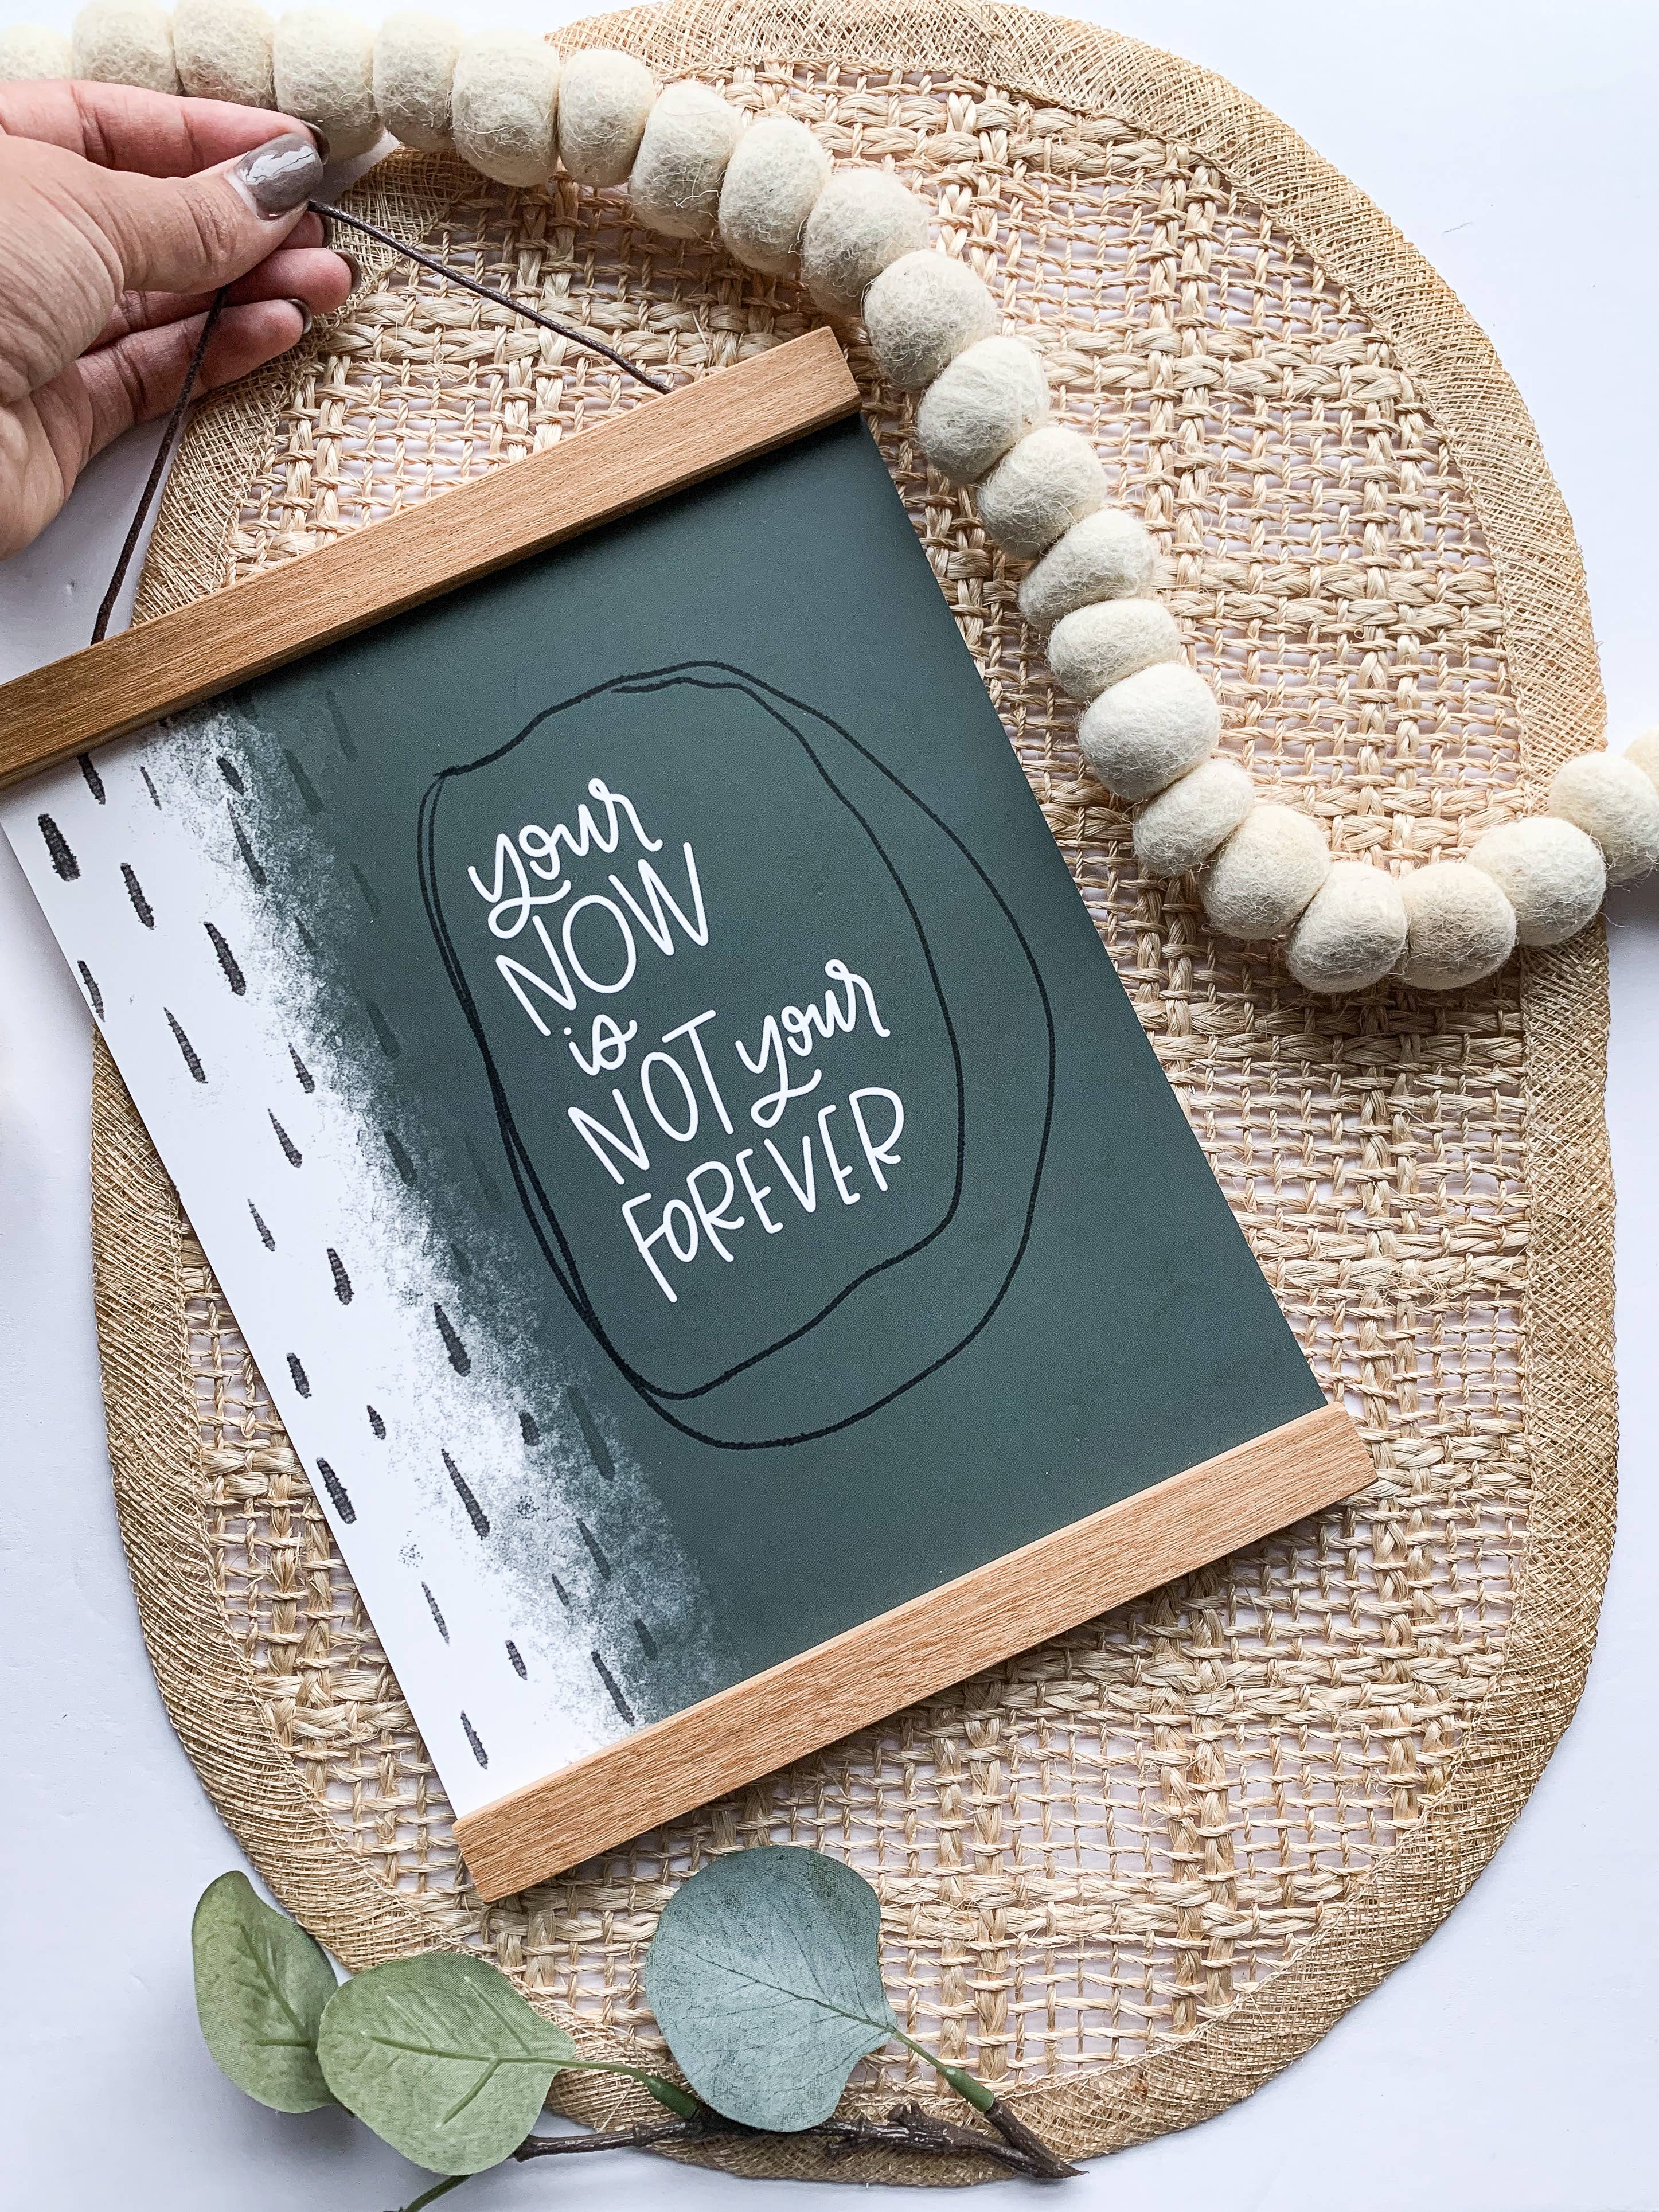 your
NOW
is
NOT your
FOREVER